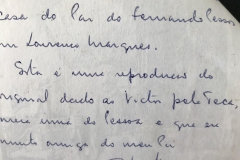 casa do Pai do Fernando Pessoa
em Lourenço Marques.
Esta é uma reprodução do
original dado ao Victor pela Teca,
meia irmã do Pessoa e que era
muito amiga do meu Pai